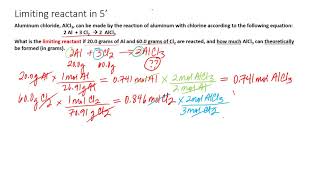 Limiting reactant in 5'
Aluminum chloride, AlCl₃, can be made by the reaction of aluminum with chlorine according to the following equation:
2 Al + 3 Cl₂ → 2 AlCl₃
What is the limiting reactant if 20.0 grams of Al and 60.0 grams of Cl₂ are reacted, and how much AlCl₃ can theoretically
be formed (in grams).
2Al + 3Cl₂ → 2AlCl₃
20.0g 60.0g ??
20.0g Al × 1 mol Al / 26.98g Al = 0.741 mol Al × 2 mol AlCl₃ / 2 mol Al = 0.741 mol AlCl₃
60.0g Cl₂ × 1 mol Cl₂ / 70.91 g Cl₂ = 0.846 mol Cl₂ × 2 mol AlCl₃ / 3 mol Cl₂